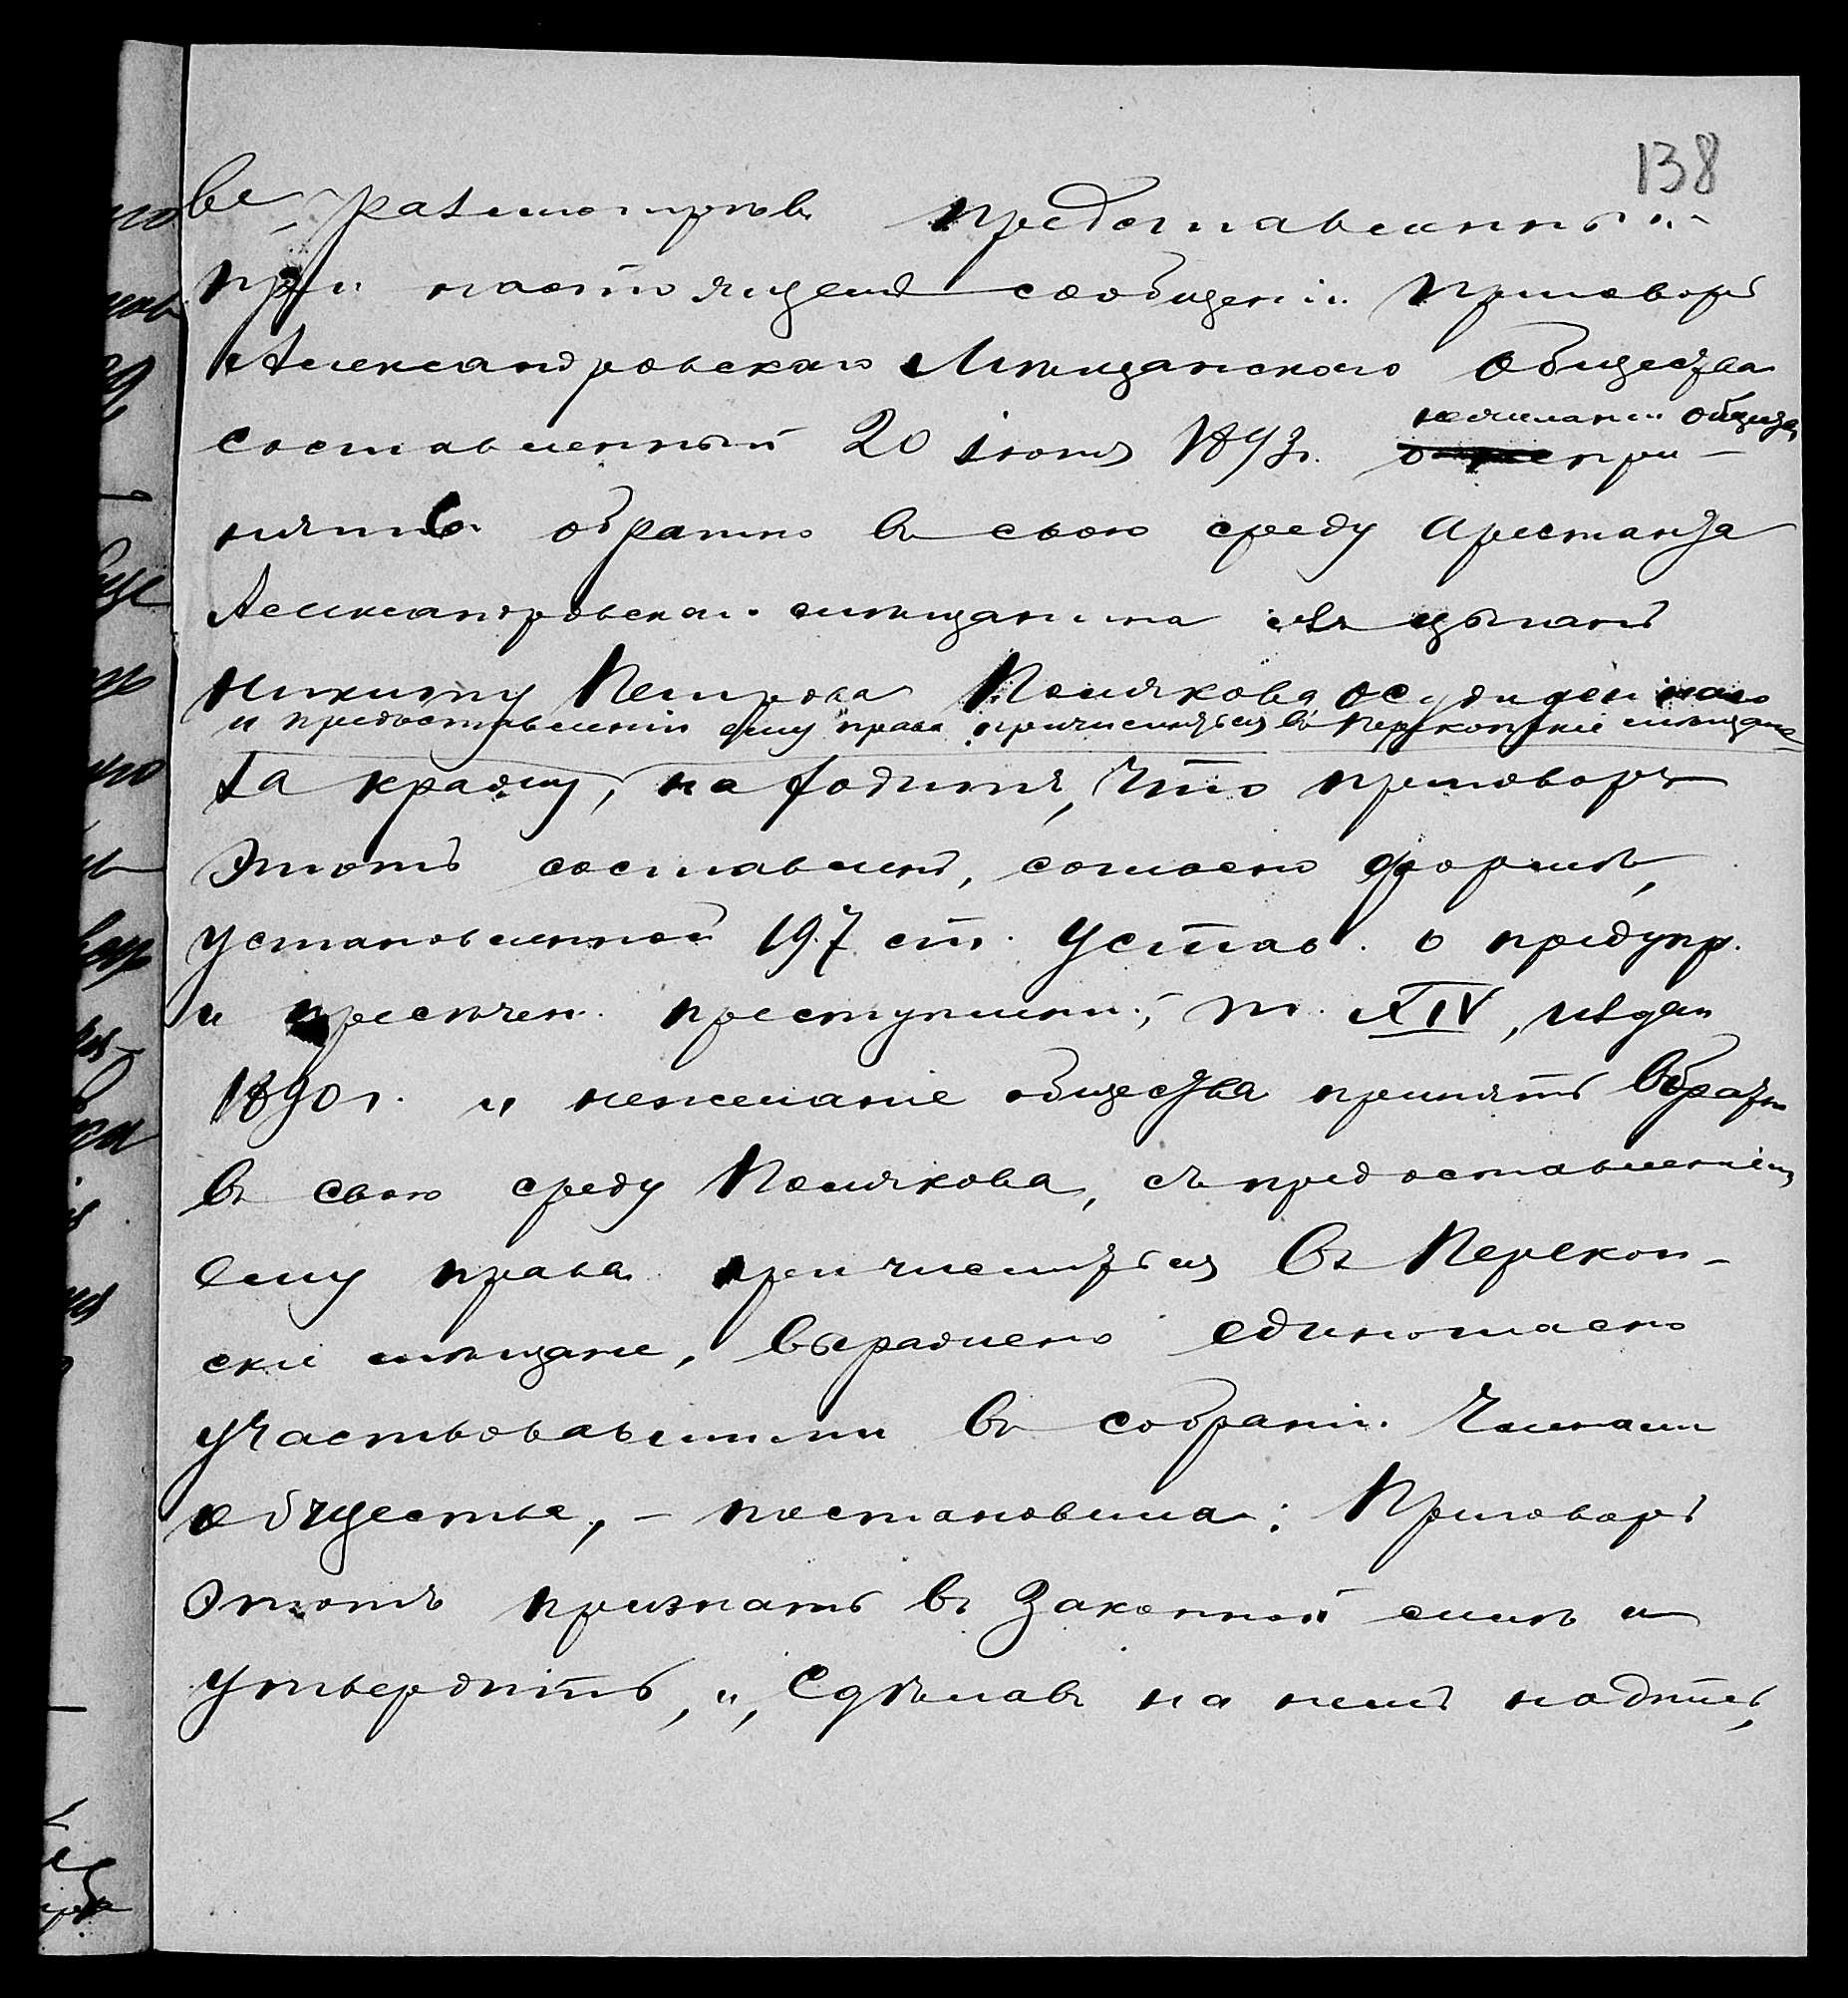 138
ве, разсмотрѣвъ представленный
при настоящемъ сообщеніи приговоръ
Александровскаго Мѣщанскаго Общества
нежеланіи общества
составленный 20 іюня 1893 г. о при-
нятіи обратно въ свою среду арестанта
Александровскаго мѣщанина изъ цыганъ
Никиту Петрова Полякова осужденнаго
и предоставленіи ему права причислиться въ Перекопскіе мѣщане
за кражу, находитъ, что приговоръ
этотъ составленъ, согласно формѣ,
установленной 197 ст. Устав. о предупр.
и пресѣчен. преступлен., т. XIV, издан
1890 г. и нежеланіе общества принять обратно
въ свою среду Полякова, съ предоставленіемъ
ему права причислиться въ Перекоп-
скіе мѣщане, выражено единогласно
участвовавшими въ собраніи членами
общества, – постановила: Приговоръ
этотъ признать въ законной силѣ и
утвердить, и, сдѣлавъ на немъ надпись,